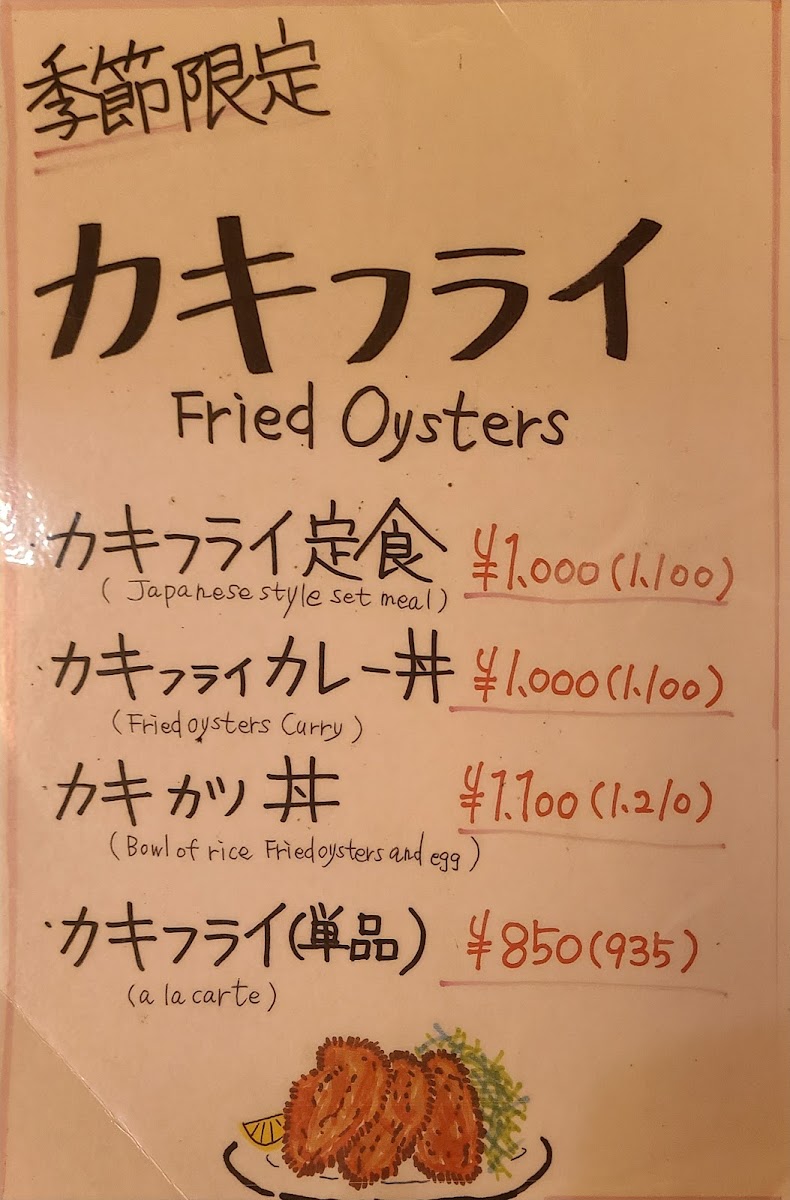 季節限定
カキフライ
Fried Oysters
・カキフライ定食 ¥1.000(1.100)
( Japanese style set meal)
・カキフライカレー丼 ¥1.000(1.100)
(Fried oysters Curry)
・カキカツ丼 ¥1.100(1.210)
(Bowl of rice Fried oysters and egg)
・カキフライ(単品) ¥850(935)
(a la carte)